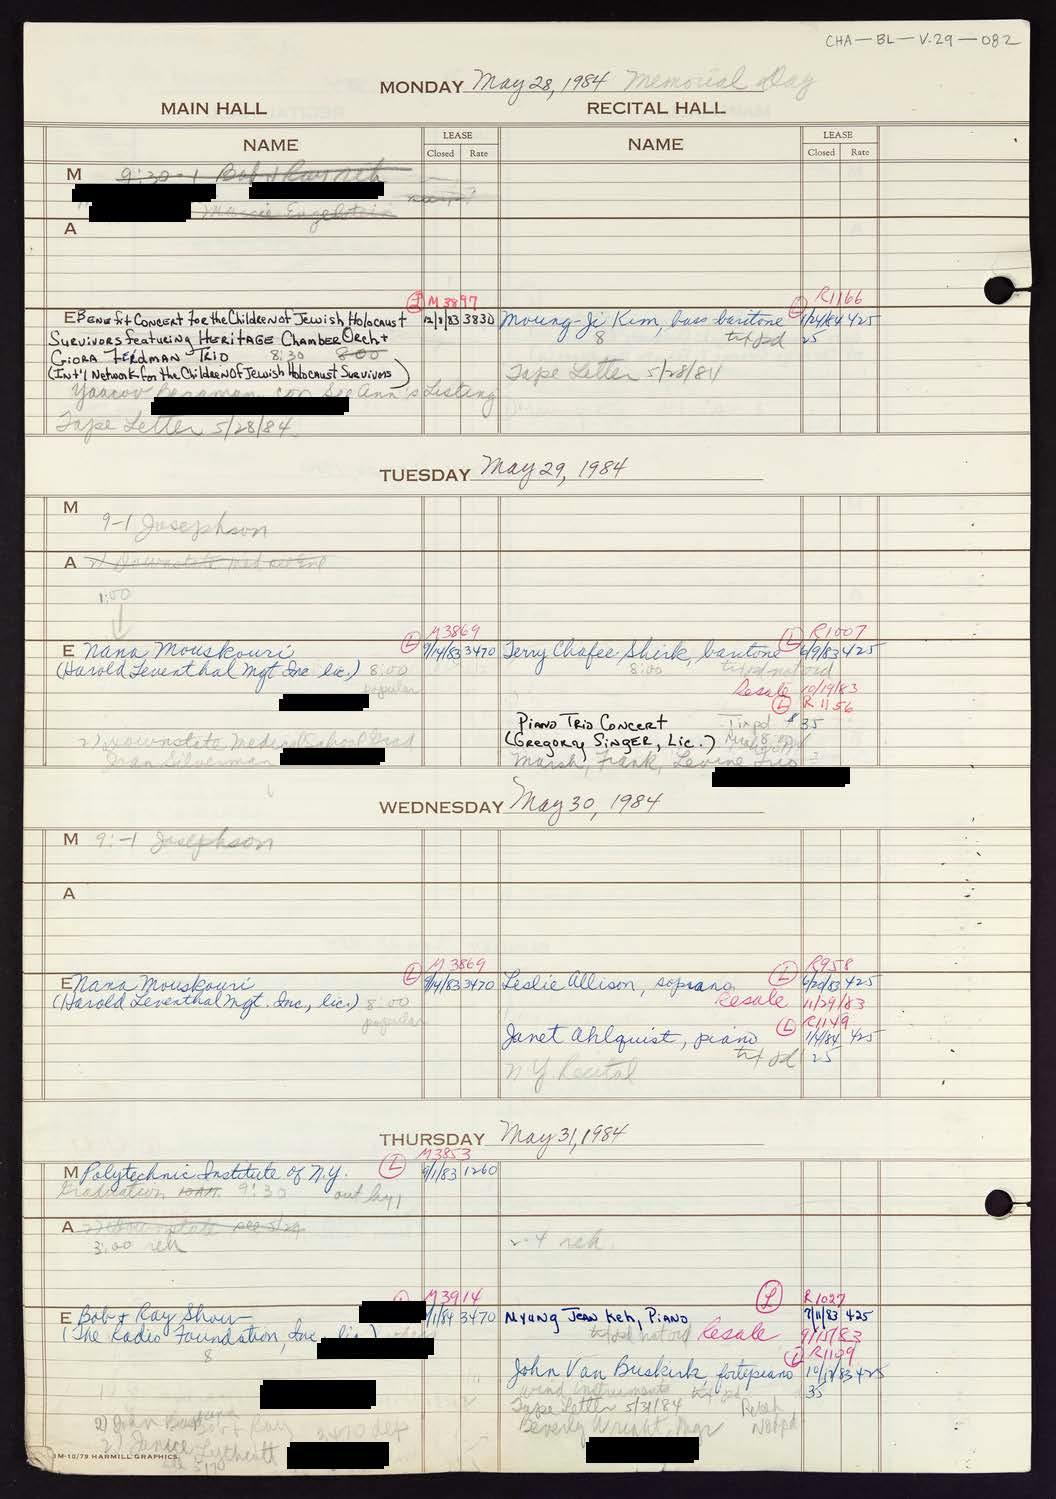 CHA-BL-V.29-082
MONDAY May 28, 1984 Memorial Day
MAIN HALL RECITAL HALL
NAME LEASE NAME LEASE
Closed Rate Closed Rate
M 9:30-1 Bob & Ray
A
L M3897 L R1166
E BENEfit CONCERT for the CHildren of Jewish Holocaust 12/8/83 3830 Moung-Ji Kim, bass baritone 1/24/84 425
SURVIVORS featuring HERITAGE CHAMBER Orch + 8 txt pd 25
GIORA FEIDMAN TRIO 8:30 8:00
(Int'l Network for the Children of Jewish Holocaust Survivors) Tape Letter 5/28/84
Yaacov con See Ann's Listing
Tape Letter 5/28/84
TUESDAY May 29, 1984
M
9-1 Josephson
A 2) Downstate Med
1:00
L M3869 L R1007
E Nana Mouskouri 9/14/83 3470 Terry Chafee Shirk, baritone 6/9/83 425
(Harold Leventhal Mgt Inc lic.) 8:00 8:00 txt pd not ord
popular Resale 10/19/83
L R1156
PIANO TRIO CONCERT $35
2) Downstate Medical School Grad (GREGORY SINGER, Lic.)
Joan Silverman Marsh, Frank, Levine Trio
WEDNESDAY May 30, 1984
M 9:-1 Josephson
A
L M3869 R958
E Nana Mouskouri 9/14/83 3470 Leslie Allison, soprano L 4/20/83 425
(Harold Leventhal Mgt. Inc., lic.) 8:00 Resale 11/29/83
popular L R1149
Janet Ahlquist, piano 1/4/84 425
txt pd 25
NY Recital
THURSDAY May 31, 1984
L M3853
M Polytechnic Institute of N.Y. 9/1/83 1260
Graduation 10AM 9:30 out by 1
A 2) Downstate see 5/29
3:00 reh 2-4 reh.
L M3914 L R1027
E Bob & Ray Show 3470 Myung Jean Keh, PIANO 7/11/83 425
(The Radio Foundation, Inc lic.) txt pd not ord Resale 9/15/83
8 L R1109
John Van Buskirk, fortepiano 10/12/83 425
wind instruments txt pd 35
Tape Letter 5/31/84
Bob & Ray 3470 dep Beverly Wright, Mgr
2) Janice Lythcott
1M-10/79 HARMILL GRAPHICS